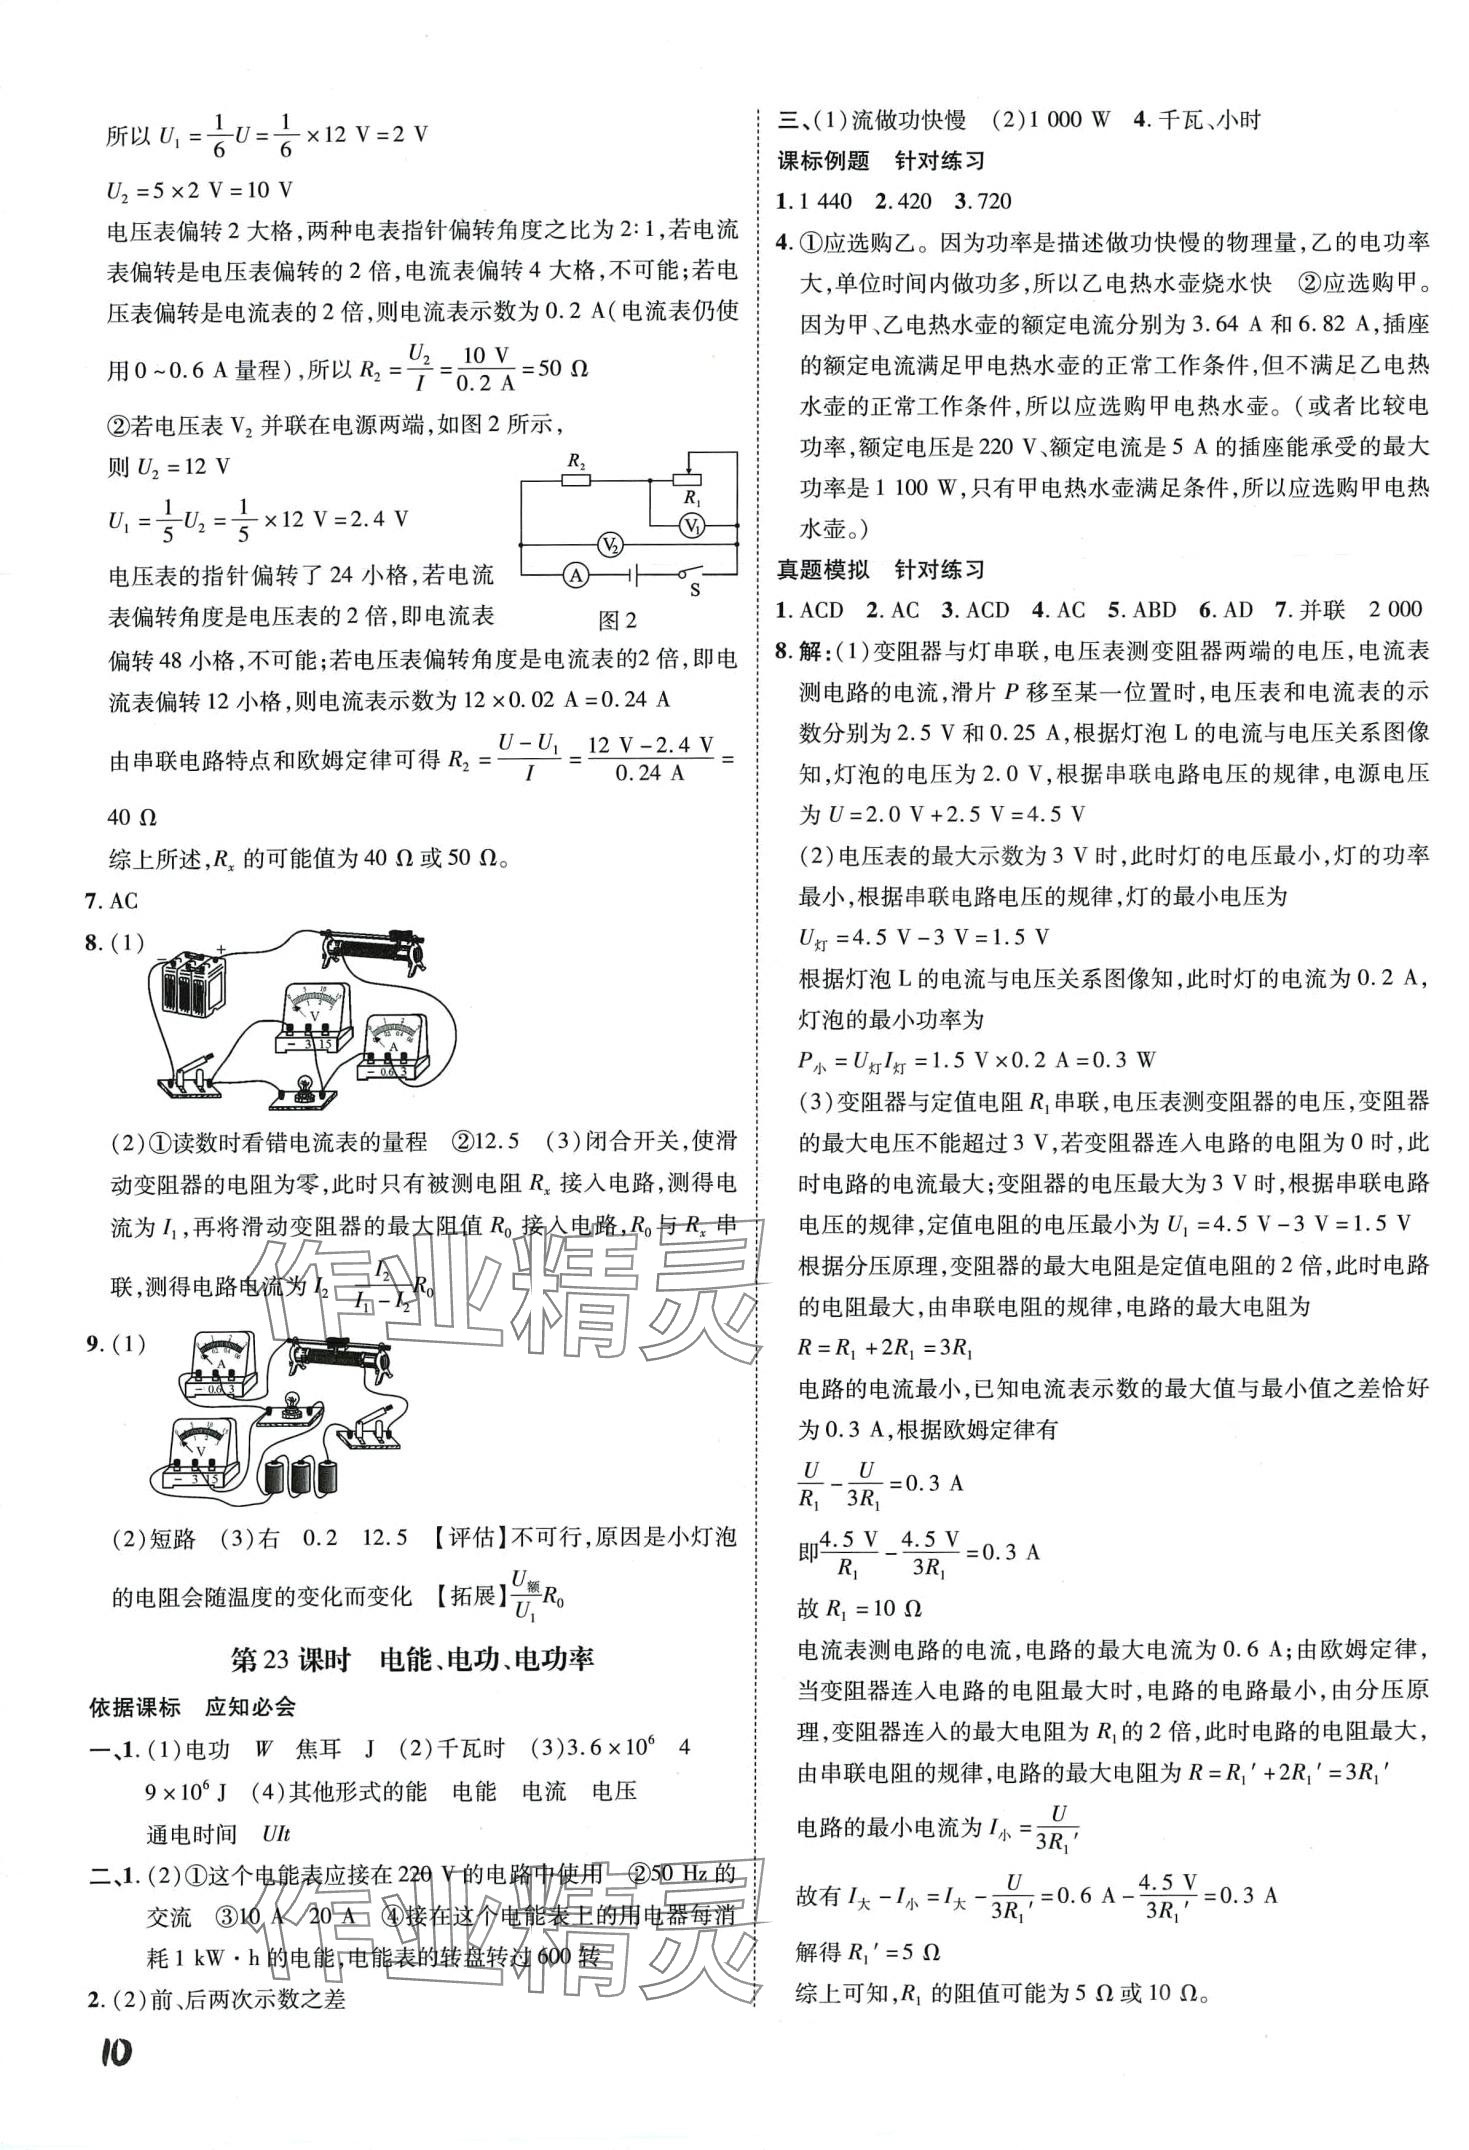 所以 U₁ = 1/6 U = 1/6 × 12 V = 2 V
U₂ = 5 × 2 V = 10 V
电压表偏转 2 大格,两种电表指针偏转角度之比为 2∶1,若电流
表偏转是电压表偏转的 2 倍,电流表偏转 4 大格,不可能;若电
压表偏转是电流表的 2 倍,则电流表示数为 0.2 A(电流表仍使
用 0~0.6 A 量程),所以 R₂ = U₂/I = 10 V/0.2 A = 50 Ω
②若电压表 V₂ 并联在电源两端,如图 2 所示,
则 U₂ = 12 V
U₁ = 1/5 U₂ = 1/5 × 12 V = 2.4 V
R₂
R₁
V₁
V₂
A
S
图 2
电压表的指针偏转了 24 小格,若电流
表偏转角度是电压表的 2 倍,即电流表
偏转 48 小格,不可能;若电压表偏转角度是电流表的2 倍,即电
流表偏转 12 小格,则电流表示数为 12 × 0.02 A = 0.24 A
由串联电路特点和欧姆定律可得 R₂ = (U − U₁)/I = (12 V − 2.4 V)/0.24 A =
40 Ω
综上所述,Rₓ 的可能值为 40 Ω 或 50 Ω。
7. AC
8. (1)
(2)①读数时看错电流表的量程 ②12.5 (3)闭合开关,使滑
动变阻器的电阻为零,此时只有被测电阻 Rₓ 接入电路,测得电
流为 I₁,再将滑动变阻器的最大阻值 R₀ 接入电路,R₀ 与 Rₓ 串
联,测得电路电流为 I₂ I₂/(I₁ − I₂) R₀
9. (1)
(2)短路 (3)右 0.2 12.5 【评估】不可行,原因是小灯泡
的电阻会随温度的变化而变化 【拓展】U额/U₁ R₀
第 23 课时 电能、电功、电功率
依据课标 应知必会
一、1. (1)电功 W 焦耳 J (2)千瓦时 (3)3.6 × 10⁶ 4
9 × 10⁶ J (4)其他形式的能 电能 电流 电压
通电时间 UIt
二、1. (2)①这个电能表应接在 220 V 的电路中使用 ②50 Hz 的
交流 ③10 A 20 A ④接在这个电能表上的用电器每消
耗 1 kW·h 的电能,电能表的转盘转过 600 转
2. (2)前、后两次示数之差
10
三、(1)流做功快慢 (2)1 000 W 4. 千瓦、小时
课标例题 针对练习
1. 1 440 2. 420 3. 720
4. ①应选购乙。因为功率是描述做功快慢的物理量,乙的电功率
大,单位时间内做功多,所以乙电热水壶烧水快 ②应选购甲。
因为甲、乙电热水壶的额定电流分别为 3.64 A 和 6.82 A,插座
的额定电流满足甲电热水壶的正常工作条件,但不满足乙电热
水壶的正常工作条件,所以应选购甲电热水壶。(或者比较电
功率,额定电压是 220 V、额定电流是 5 A 的插座能承受的最大
功率是 1 100 W,只有甲电热水壶满足条件,所以应选购甲电热
水壶。)
真题模拟 针对练习
1. ACD 2. AC 3. ACD 4. AC 5. ABD 6. AD 7. 并联 2 000
8. 解:(1)变阻器与灯串联,电压表测变阻器两端的电压,电流表
测电路的电流,滑片 P 移至某一位置时,电压表和电流表的示
数分别为 2.5 V 和 0.25 A,根据灯泡 L 的电流与电压关系图像
知,灯泡的电压为 2.0 V,根据串联电路电压的规律,电源电压
为 U = 2.0 V + 2.5 V = 4.5 V
(2)电压表的最大示数为 3 V 时,此时灯的电压最小,灯的功率
最小,根据串联电路电压的规律,灯的最小电压为
U灯 = 4.5 V − 3 V = 1.5 V
根据灯泡 L 的电流与电压关系图像知,此时灯的电流为 0.2 A,
灯泡的最小功率为
P小 = U灯I灯 = 1.5 V × 0.2 A = 0.3 W
(3)变阻器与定值电阻 R₁串联,电压表测变阻器的电压,变阻器
的最大电压不能超过 3 V,若变阻器连入电路的电阻为 0 时,此
时电路的电流最大;变阻器的电压最大为 3 V 时,根据串联电路
电压的规律,定值电阻的电压最小为 U₁ = 4.5 V − 3 V = 1.5 V
根据分压原理,变阻器的最大电阻是定值电阻的 2 倍,此时电路
的电阻最大,由串联电阻的规律,电路的最大电阻为
R = R₁ + 2R₁ = 3R₁
电路的电流最小,已知电流表示数的最大值与最小值之差恰好
为 0.3 A,根据欧姆定律有
U/R₁ − U/3R₁ = 0.3 A
即 4.5 V/R₁ − 4.5 V/3R₁ = 0.3 A
故 R₁ = 10 Ω
电流表测电路的电流,电路的最大电流为 0.6 A;由欧姆定律,
当变阻器连入电路的电阻最大时,电路的电流最小,由分压原
理,变阻器连入的最大电阻为 R₁的 2 倍,此时电路的电阻最大,
由串联电阻的规律,电路的最大电阻为 R = R₁′ + 2R₁′ = 3R₁′
电路的最小电流为 I小 = U/3R₁′
故有 I大 − I小 = I大 − U/3R₁′ = 0.6 A − 4.5 V/3R₁′ = 0.3 A
解得 R₁′ = 5 Ω
综上可知,R₁ 的阻值可能为 5 Ω 或 10 Ω。
作业精灵
作业精灵